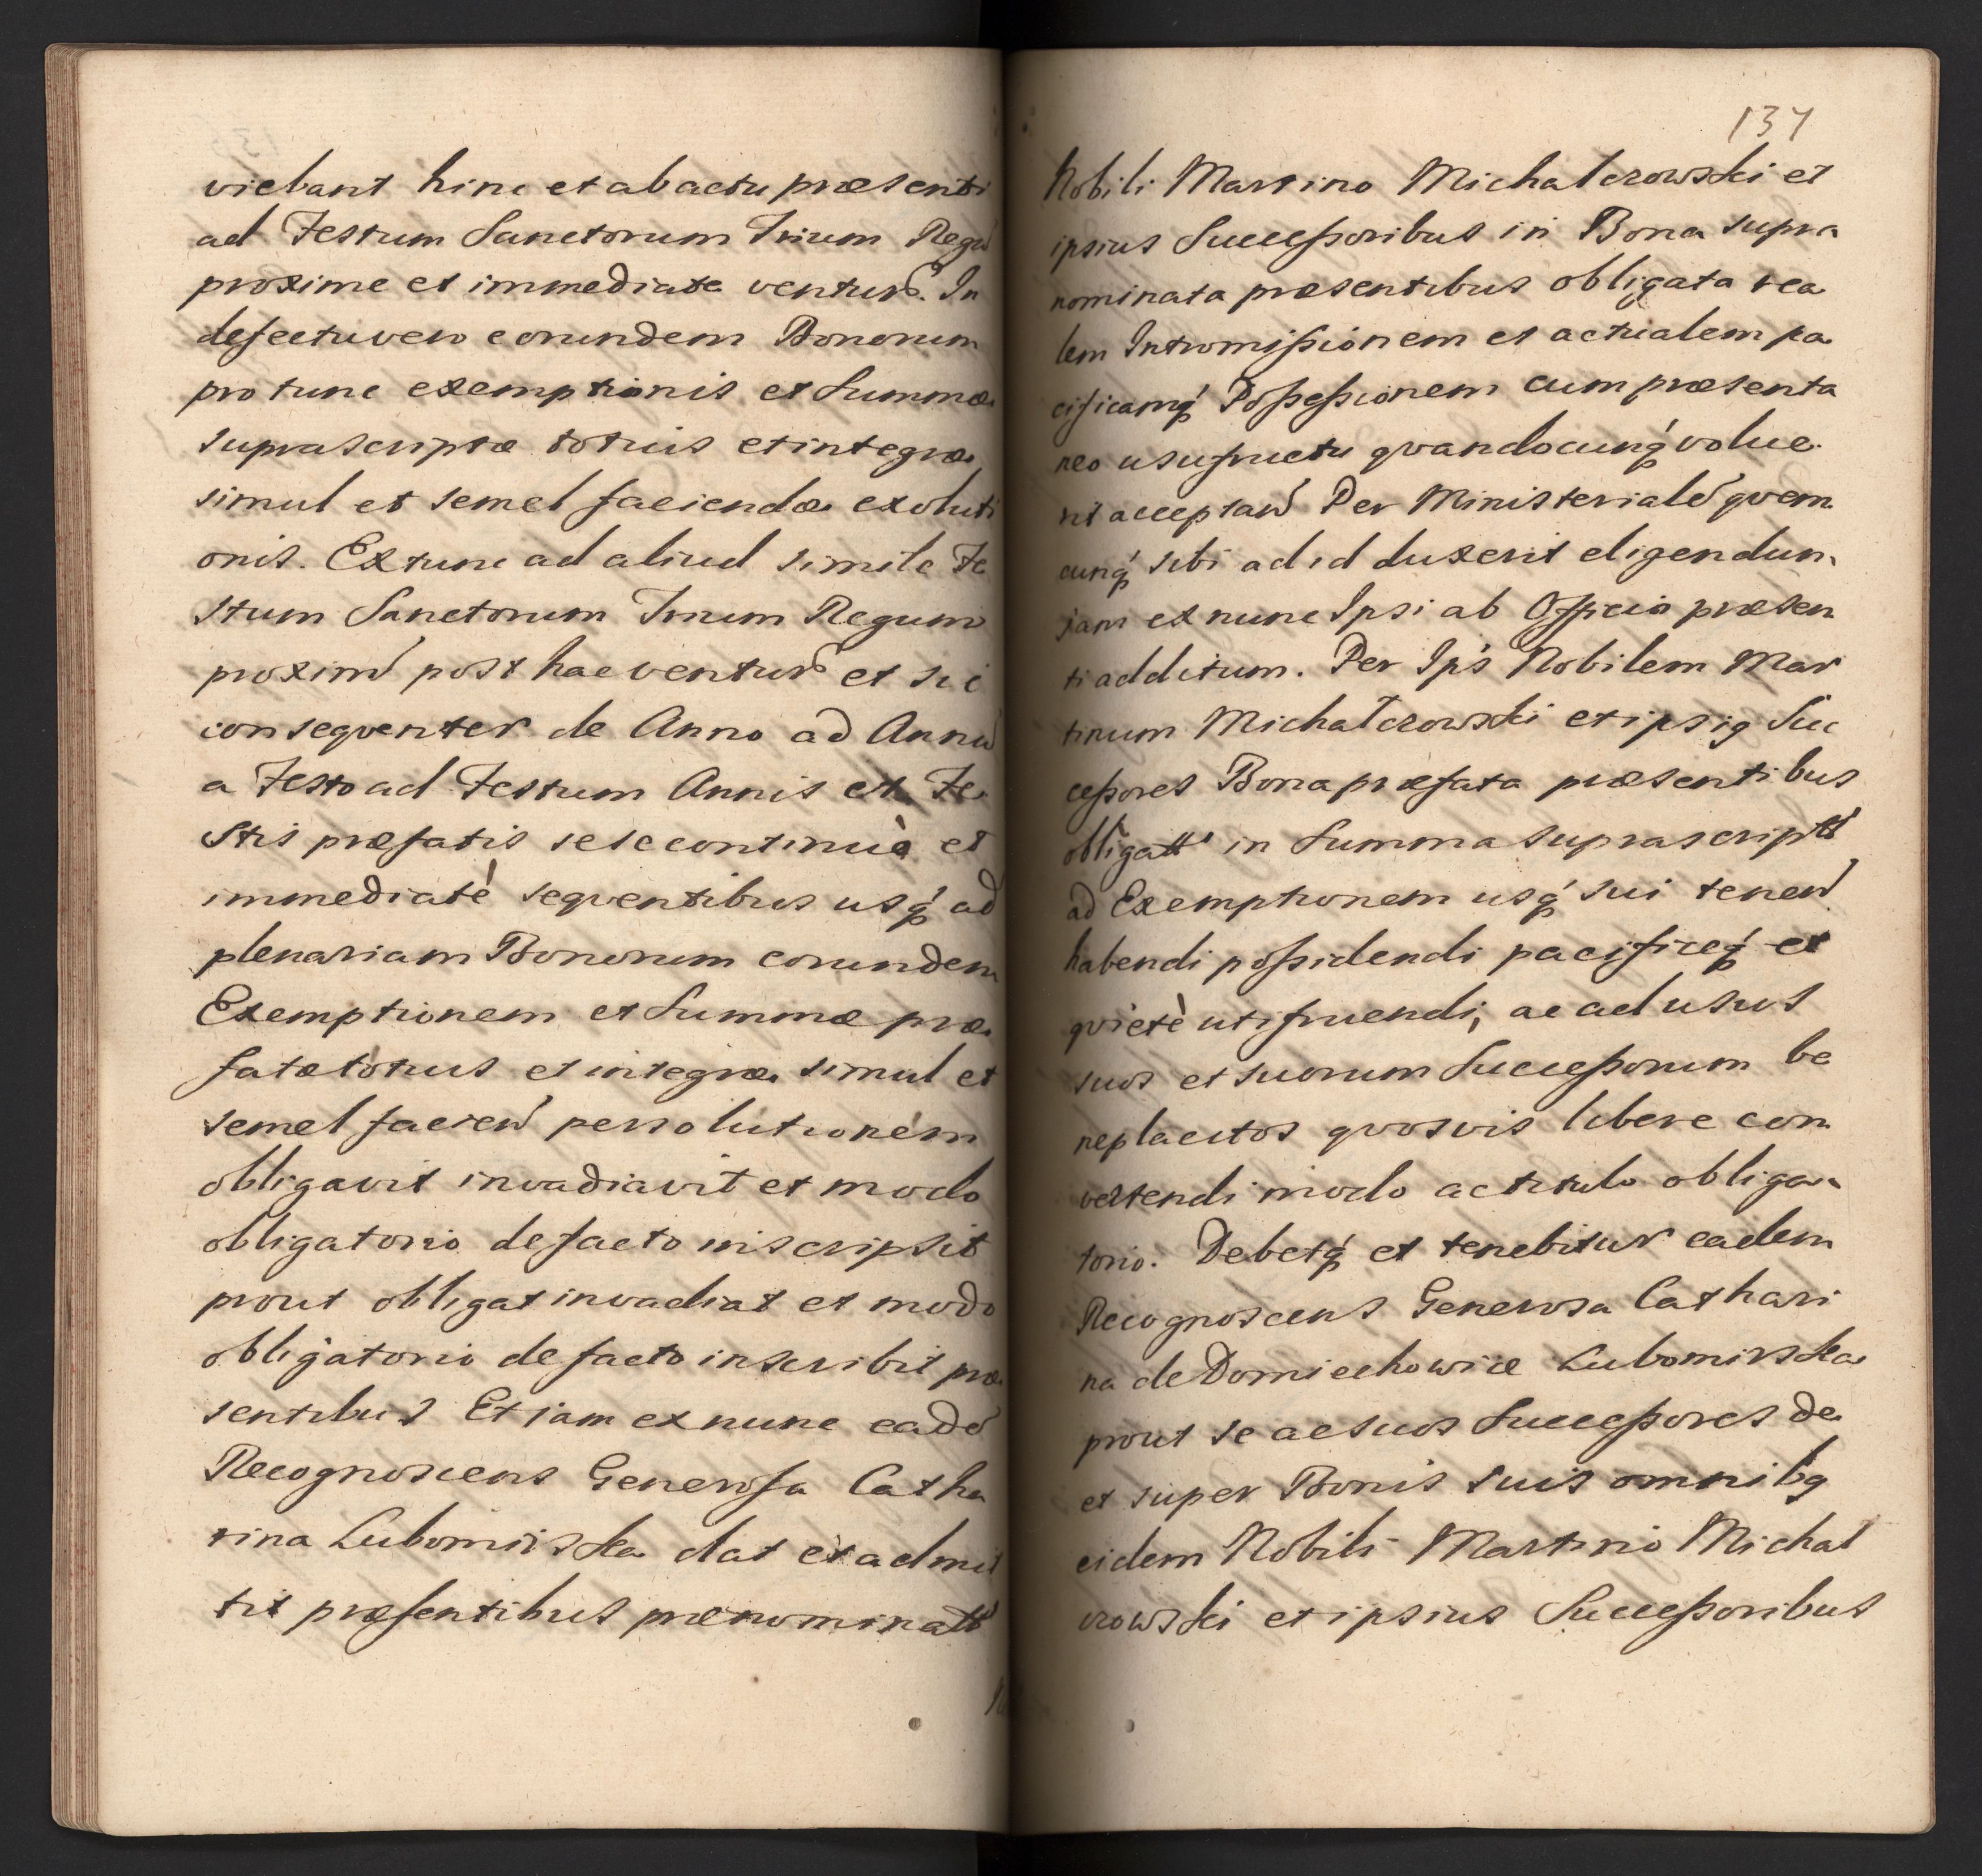 viebant hinc et ab actu præsenti
ad Festum Sanctorum Trium Regũ
proxime et immediate ventuṙ. In
defectu vero eorundem Bonorum
pro tunc exemptionis et Summæ
suprascriptæ totius et integræ
simul et semel faciendæ exoluti
onis. Ex tunc ad aliud simile Fe
stum Sanctorum Trium Regum
proximũ post hac ventuṙ et sic
conseqventer de Anno ad Annũ
a Festo ad Festum Annis et Fe
stis præfatis sese continuè et
immediatè seqventibus usq́ ad
plenariam Bonorum eorundem
Exemptionem et Summæ præ
fatæ totius et integræ simul et
semel facień persolutionem
obligavit invadiavit et modo
obligatorio de facto inscripsit
prout obligat invadiat et modo
obligatorio de facto inscribit præ
sentibus Et iam ex nunc eadẽ
Recognoscens Generosa Catha
rina Lubomirska dat et admit
tit præsentibus prænominatt
137
Nobili Martino Michalczowski et
ipsius Successoribus in Bona supra
nominata præsentibus obligata rea
lem Intromissionem et actualem pa
cificamq́ Possessionem cum præsenta
neo usufructu qvandocunq́ volue
rit acceptań Per Ministerialẽ qvem
cunq́ sibi ad id duxerit eligendum
jam ex nunc Ipsi ab Officio præsen
ti additum. Per Ips Nobilem Mar
tinum Michałczowski et ipsig Suc
cessores Bona præfata præsentibus
obligatt in Summa suprascriptt
ad Exemptionem usq́ sui teneń
habendi possidendi pacificeq́ et
qvietè utifruendi, ac ad usus
suos et suorum Successorum be
neplacitos qvosvis libere con
vertendi modo ac titulo obliga
torio. Debetq́ et tenebitur eadem
Recognoscens Generosa Cathari
na de Domiechowice Lubomirska
prout se ac suos Successores de
et super Bonis suis omnibg
eidem Nobili Martino Michal
czowski et ipsius Successoribus